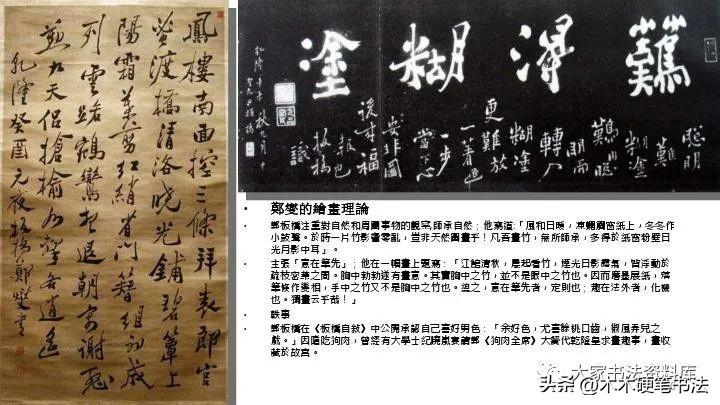 鳳樓南面控三條拜表郎官
蚤渡橋清洛曉光鋪碧簟上
陽霜葉剪紅綃省門簪組初成
列雲路鵷鸞想退朝寄謝殷
勤九天侶搶榆水擊各逍遙
乾隆癸酉元夜板橋鄭燮書
難得糊塗
聰明
難
糊塗
難由聰
明而
轉入
糊塗
更難放
一著退
一步
當下心
安非圖
後來福
報也
板橋
識
鄭燮的繪畫理論
鄭板橋注重對自然和周圍事物的觀察,師承自然;他寫道:「風和日暖,凍蠅觸窗紙上,冬冬作
小鼓聲。於時一片竹影零亂,豈非天然圖畫乎!凡吾畫竹,無所師承,多得於紙窗粉壁日
光月影中耳」。
主張「意在筆先」;他在一幅畫上題寫:「江館清秋,晨起看竹,煙光日影露氣,皆浮動於
疏枝密葉之間。胸中勃勃遂有畫意。其實胸中之竹,並不是眼中之竹也。因而磨墨展紙,落
筆倏作變相,手中之竹又不是胸中之竹也。總之,意在筆先者,定則也;趣在法外者,化機
也。獨畫云乎哉!」
軼事
鄭板橋在《板橋自敘》中公開承認自己喜好男色:「余好色,尤喜餘桃口齒,椒風弄兒之
戲。」因臨吃狗肉,曾經有大學士紀曉嵐宴請鄭《狗肉全席》大醬代乾隆皇求畫趣事,畫收
藏於故宮。
大家书法资料库
头条@木木硬笔书法